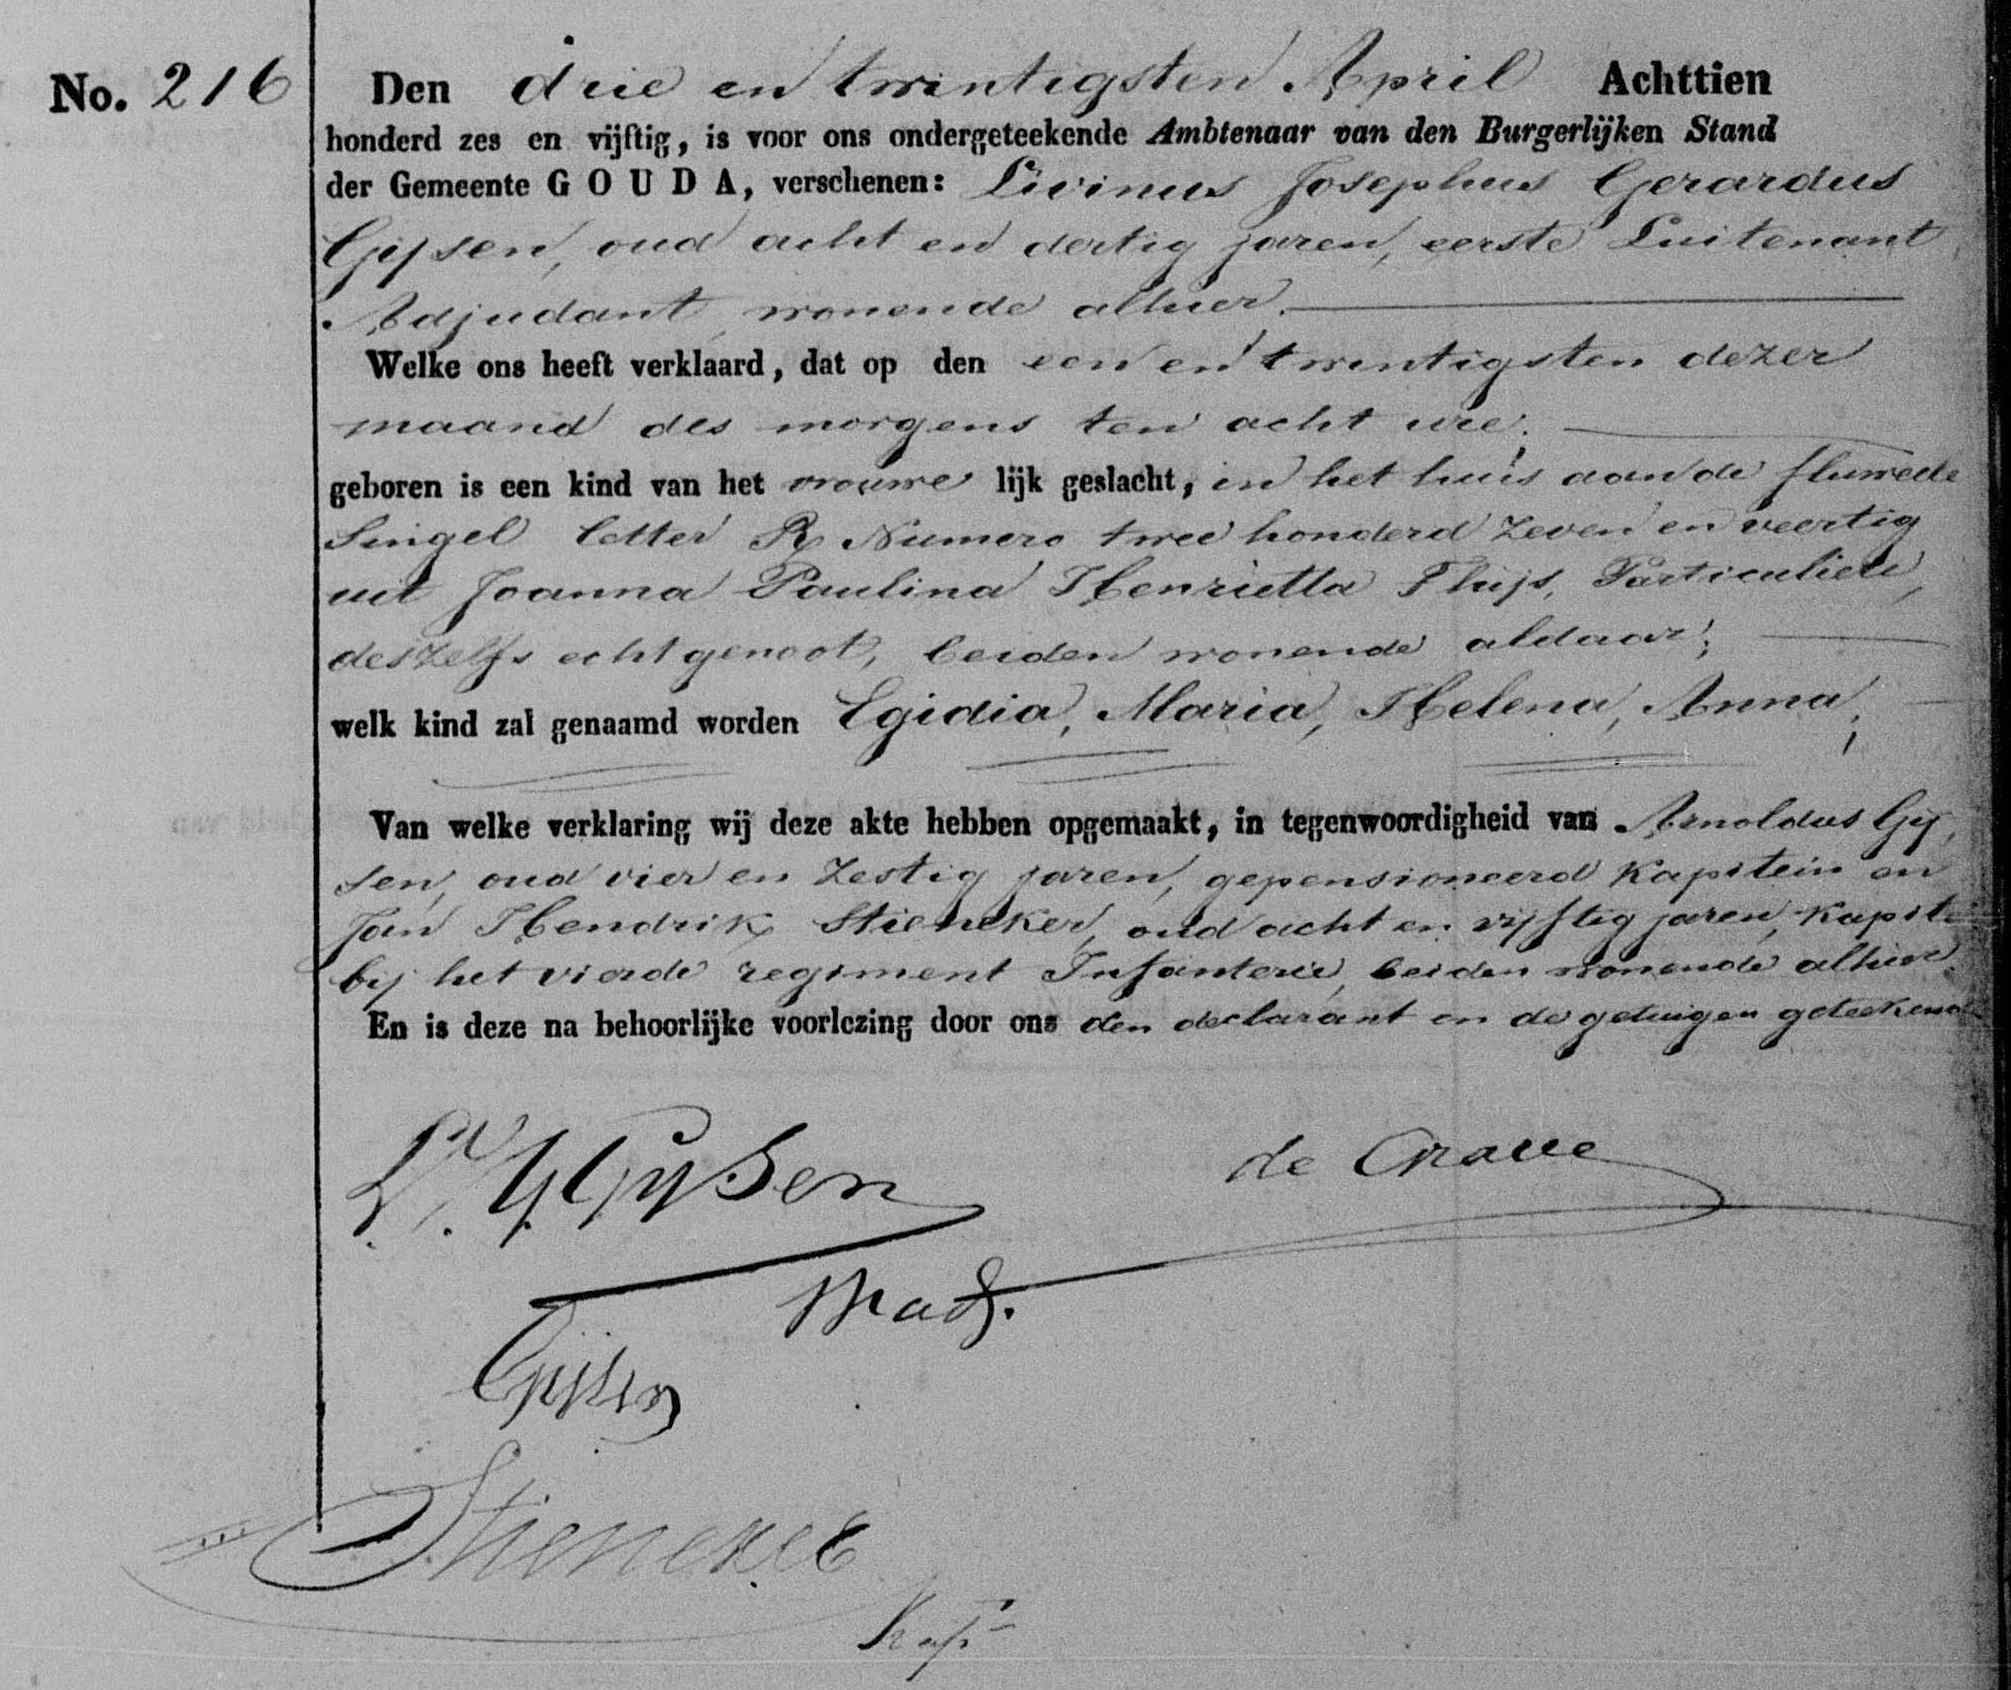 No. 216
Den drie en twintigsten April Achttien
honderd zes en vijftig, is voor ons ondergeteekende Ambtenaar van den Burgerlijken Stand
der Gemeente GOUDA, verschenen: Livinus Josephus Gerardus
Gijsen, oud acht en dertig jaren, eerste Luitenant
Adjudant, wonende alhier.
Welke ons heeft verklaard, dat op den een en twintigsten dezer
maand des morgens ten acht ure;
geboren is een kind van het vrouwe lijk geslacht, in het huis aan de fluweele
Singel letter R Numero twee honderd zeven en veertig
uit Joanna Paulina Henrietta Thijs, Particuliere,
deszelfs echtgenoot, beiden wonende aldaar;
welk kind zal genaamd worden Egidia, Maria, Helena, Anna;
Van welke verklaring wij deze akte hebben opgemaakt, in tegenwoordigheid van Arnoldus Gij,
sen, oud vier en zestig jaren, gepensioneerd Kapitein en
Jan Hendrik Stieneker, oud acht en vijftig jaren, Kapit
bij het vierde regiment Infanterie, beiden wonende alhier.
En is deze na behoorlijke voorlezing door ons den declarant en de getuigen geteekend
Gijsen
de Grave
Gijsen
Stieneker
Kapt